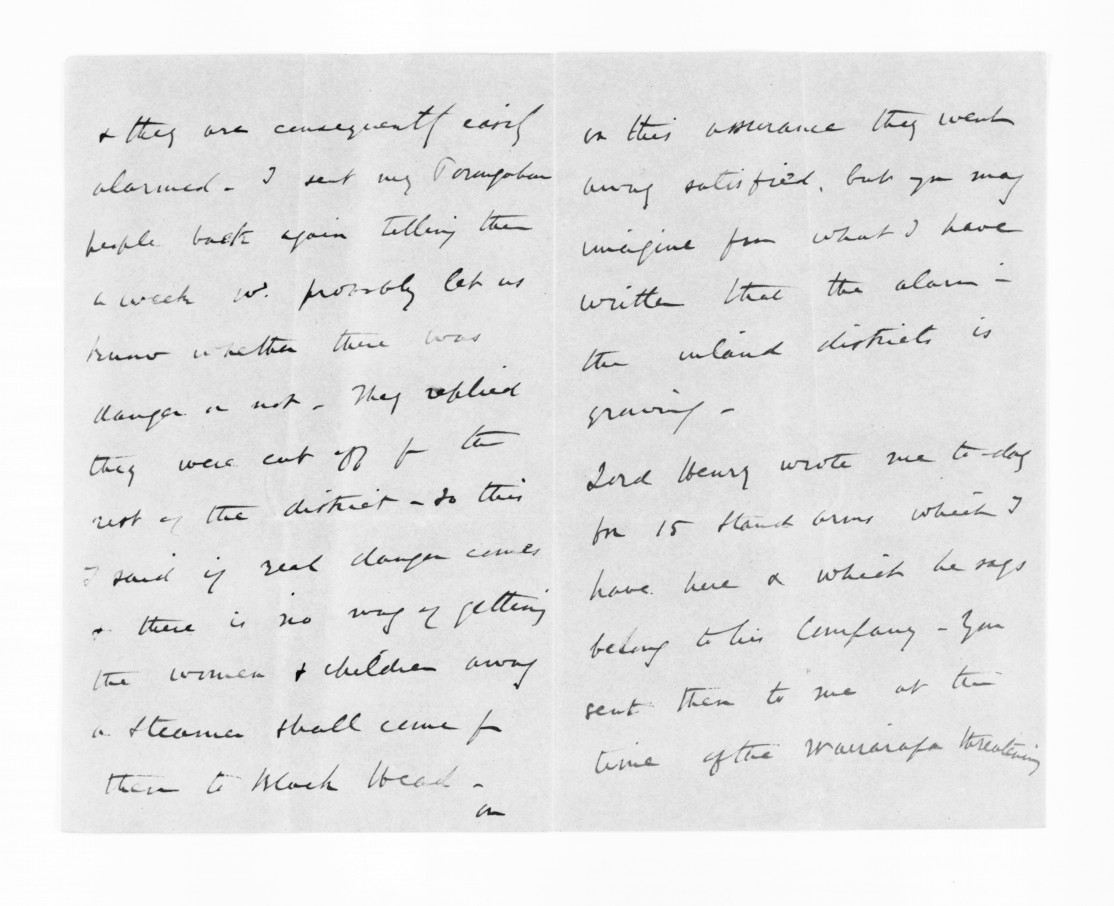 & they are consequently easily
alarmed - I sent my Porangahau
people back again telling them
a week wd. probably let us
know whether there was
danger or not - They replied
they were cut off fr the
rest of the district - to this
I said if real danger comes
& there is no way of getting
the women & children away
a steamer shall come for
them to Black Head -
on
on this assurance they went
away satisfied, but you may
imagine from what I have
written that the alarm in
the inland districts is
growing -
Lord Henry wrote me to-day
for 15 stand arms which I
have here & which he says
belong to his Company - You
sent them to me at the
time of the Wairarapa threatening